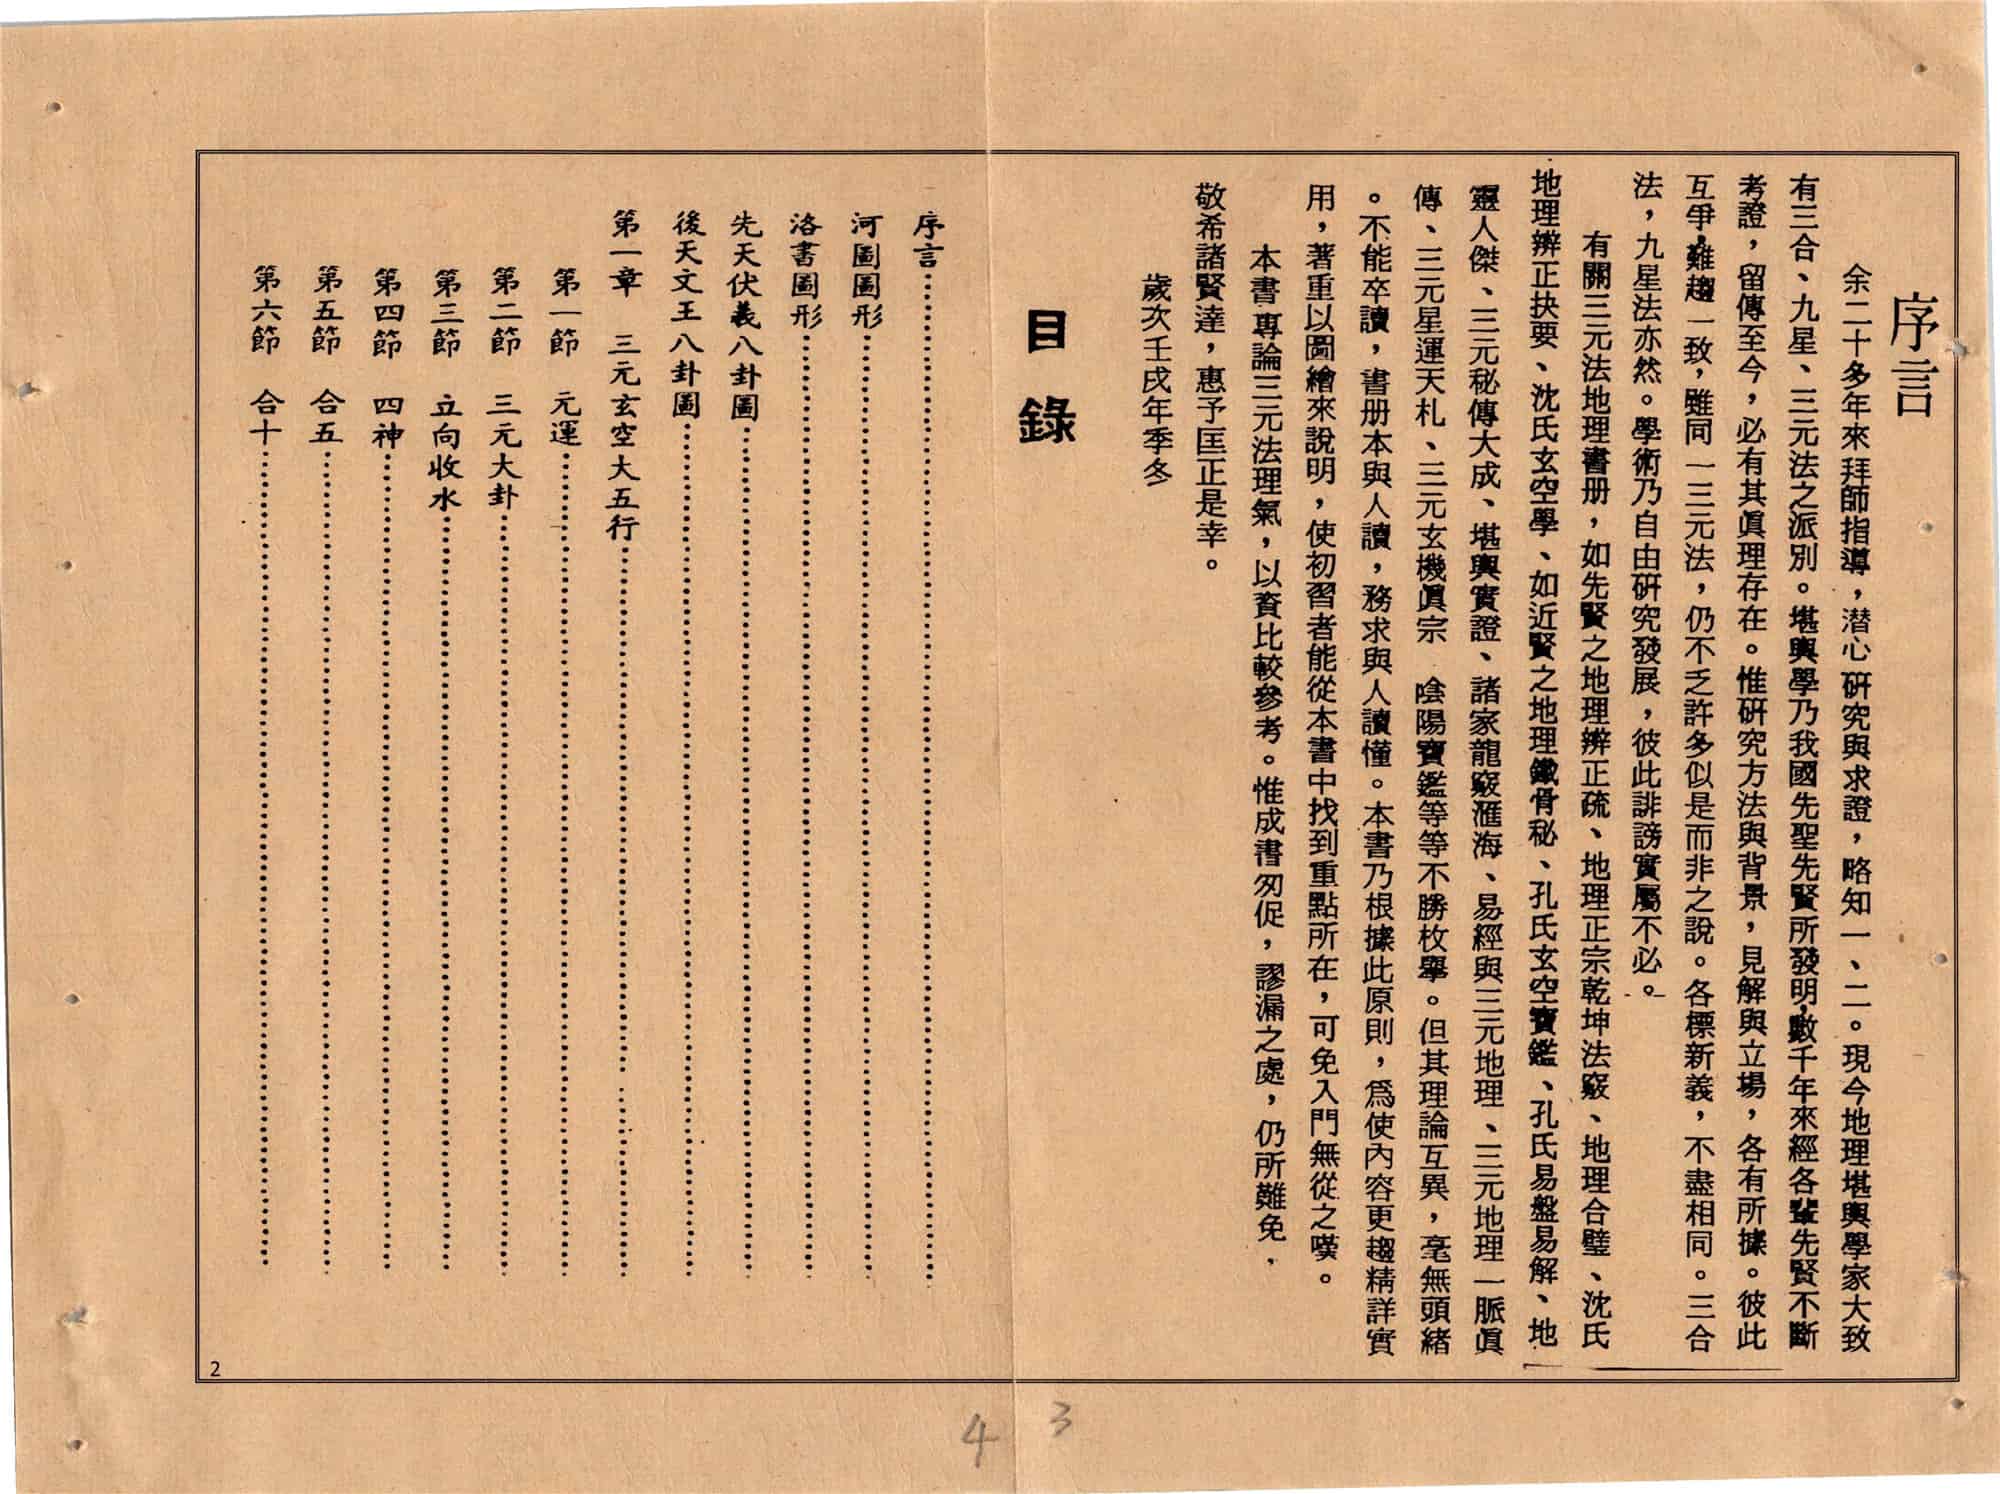 序言
余二十多年來拜師指導，潜心研究與求證，略知一、二。現今地理堪輿學家大致
有三合、九星、三元法之派別。堪輿學乃我國先聖先賢所發明，數千年來經各輩先賢不斷
考證，留傳至今，必有其眞理存在。惟研究方法與背景，見解與立場，各有所據。彼此
互爭，難趨一致，雖同一三元法，仍不乏許多似是而非之說。各標新義，不盡相同。三合
法，九星法亦然。學術乃自由研究發展，彼此誹謗實屬不必。
有關三元法地理書册，如先賢之地理辨正疏、地理正宗乾坤法竅、地理合璧、沈氏
地理辨正抉要、沈氏玄空學、如近賢之地理鐵骨秘、孔氏玄空寶鑑、孔氏易盤易解、地
靈人傑、三元秘傳大成、堪輿實證、諸家龍竅滙海、易經與三元地理、三元地理一脈眞
傳、三元星運天札、三元玄機眞宗　陰陽寶鑑等等不勝枚舉。但其理論互異，毫無頭緒
。不能卒讀，書册本與人讀，務求與人讀懂。本書乃根據此原則，爲使內容更趨精詳實
用，著重以圖繪來說明，使初習者能從本書中找到重點所在，可免入門無從之嘆。
本書專論三元法理氣，以資比較參考。惟成書匆促，謬漏之處，仍所難免，
敬希諸賢達，惠予匡正是幸。
歲次壬戌年季冬
目錄
序言……………………
河圖圖形……………………
洛書圖形……………………
先天伏義八卦圖……………………
後天文王八卦圖……………………
第一章　三元玄空大五行……………………
第一節　元運……………………
第二節　三元大卦……………………
第三節　立向收水……………………
第四節　四神……………………
第五節　合五……………………
第六節　合十……………………
2
4
3